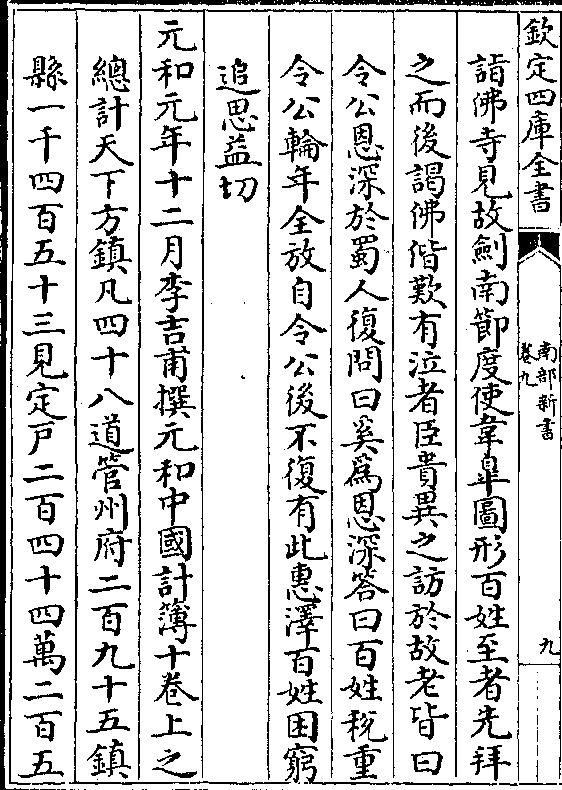 欽定四庫全書
南部新書
卷九
九
詣佛寺見故劍南節度使韋臯圖形百姓至者先拜
之而後謁佛偕歎有泣者臣貴異之訪於故老皆曰
令公恩深於蜀人復問曰奚為恩深答曰百姓税重
令公輪年全放自令公後不復有此惠澤百姓困窮
追思益切
元和元年十二月李吉甫撰元和中國計簿十卷上之
總計天下方鎮凡四十八道管州府二百九十五鎮
縣一千四百五十三見定戸二百四十四萬二百五